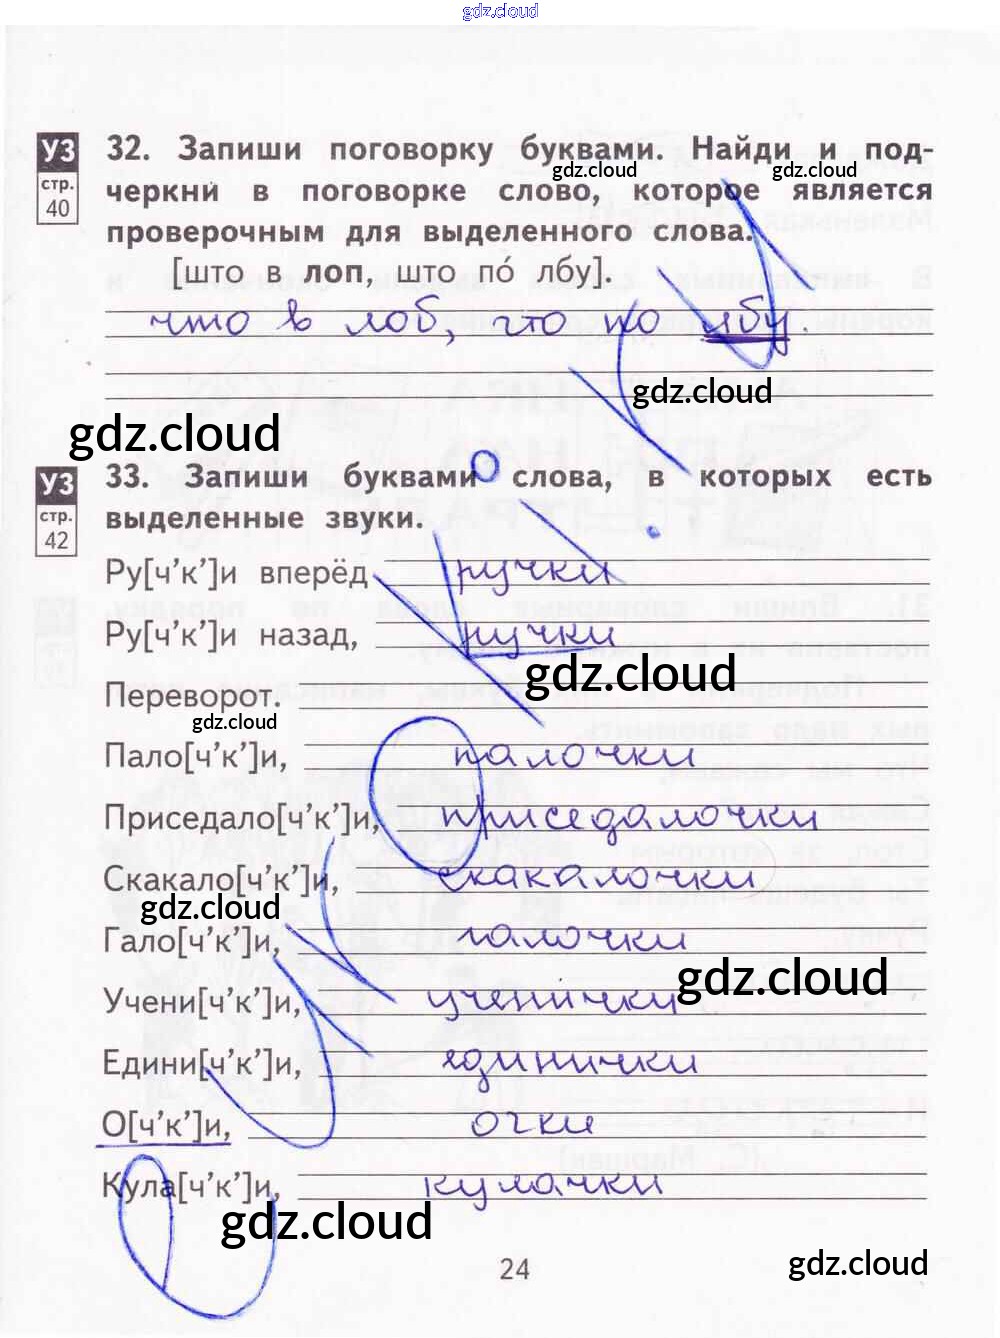 gdz.cloud
УЗ
стр.
40
32. Запиши поговорку буквами. Найди и под-
gdz.cloud gdz.cloud
черкни в поговорке слово, которое является
проверочным для выделенного слова.
[што в лоп, што по́ лбу].
что в лоб, что по лбу.
gdz.cloud
gdz.cloud
УЗ
стр.
42
33. Запиши буквами слова, в которых есть
выделенные звуки.
Ру[ч’к’]и вперёд ручки
Ру[ч’к’]и назад, ручки
gdz.cloud
Переворот.
gdz.cloud
Пало[ч’к’]и, палочки
Приседало[ч’к’]и, приседалочки
Скакало[ч’к’]и, скакалочки
gdz.cloud
Гало[ч’к’]и, галочки
gdz.cloud
Учени[ч’к’]и, ученички
Едини[ч’к’]и, единички
О[ч’к’]и, очки
Кула[ч’к’]и, кулачки
gdz.cloud
24
gdz.cloud